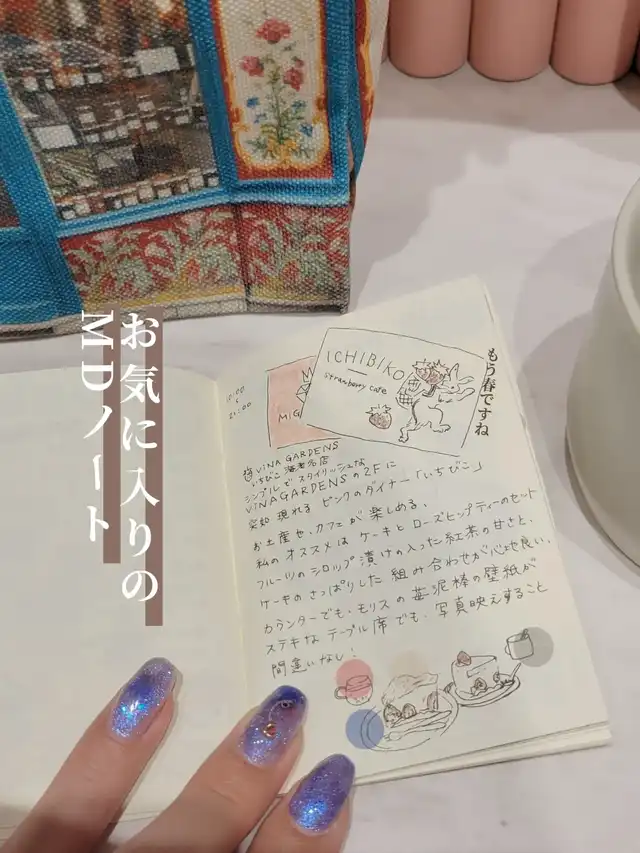 お気に入りの
MDノート
もう春ですね
ICHIBIKO
strawberry cafe
M
MIG
10:00
21:00
VINA GARDENS
いちびこ 海老名店
シンプルで スタイリッシュな
VINAGARDENSの2Fに
突如 現れる ピンクのダイナー「いちびこ」
お土産も、カフェが 楽しめる。
私の オススメは ケーキと ローズヒップティーのセット
フルーツの シロップ 漬けの入った 紅茶の甘さと、
ケーキの さっぱりした 組み合わせが心地良い、
カウンターでも、モリスの 苺泥棒の 壁紙が
ステキな テーブル席でも、写真映えすること
間違いなし!